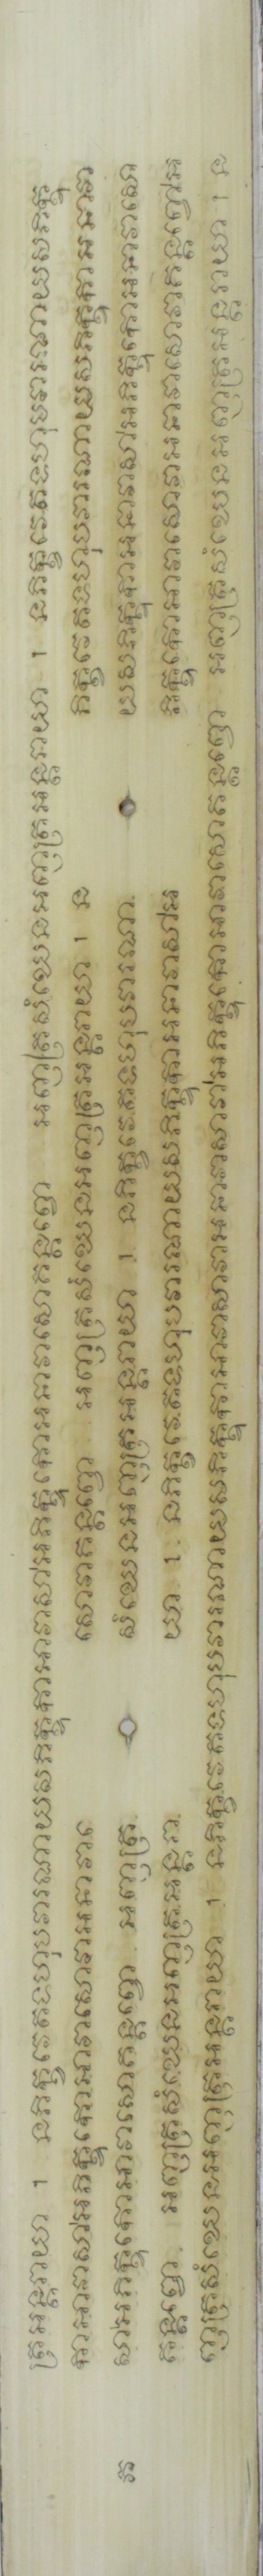 ត្រអន្តរាយា ។ នភិក្ខវេតទហុបវារណាយសភិក្ខុកាអាវាសាអភិក្ខុកោអនាវាសោគន្តព្វោ អញ្ញត្រសំឃេនអញ្ញត្រអន្តរាយា ។ នភិក្ខវេតទហុបវារណាយសភិក្ខុ
កាអាវាសាអភិក្ខុកោអាវាសោវាអនាវា សោវាគន្តព្វោ អញ្ញត្រសំឃេនអញ្ញត្រអន្តរាយា ។ ន ភិក្ខវេតទហុបវារណាយសភិក្ខុកាអនាវា
សាអភិក្ខុកោអាវាសោគន្តព្វោ អញ្ញត្រ សំឃេនអញ្ញត្រអន្តរាយា ។ នភិក្ខវេតទហុបវារណា យសភិក្ខុកាអនាវាសាអភិក្ខុកោអនាវាសោ
គន្តព្វោ អញ្ញត្រសំឃេនអញ្ញត្រអន្តរា យា ។ នភិក្ខវេតទហុបវារណាយសភិក្ខុកាអនាវាសាអ ភិក្ខុកោអាវាសោវាអនាវាសោវាគន្តព្វោអ
ញ្ញត្រសំឃេនអញ្ញត្រអន្តរាយា ។ នភិក្ខវេតទហុបវារណាយសភិក្ខុកាអាវាសាវាអនាវាសាវាអភិក្ខុកោអាវាសោគន្តព្វោ អញ្ញត្រសំឃេនអញ្ញត្រអន្តរាយា ។ ន